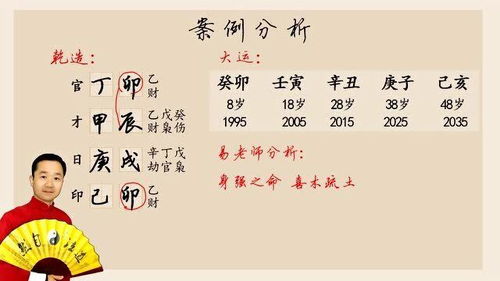 案例分析
乾造： 大运：
官 丁 卯 乙财
才 甲 辰 乙财 戊枭 癸伤
日 庚 戌 辛劫 丁官 戊枭
印 己 卯 乙财
癸卯 壬寅 辛丑 庚子 己亥
8岁 18岁 28岁 38岁 48岁
1995 2005 2015 2025 2035
易老师分析：
身强之命 喜木疏土